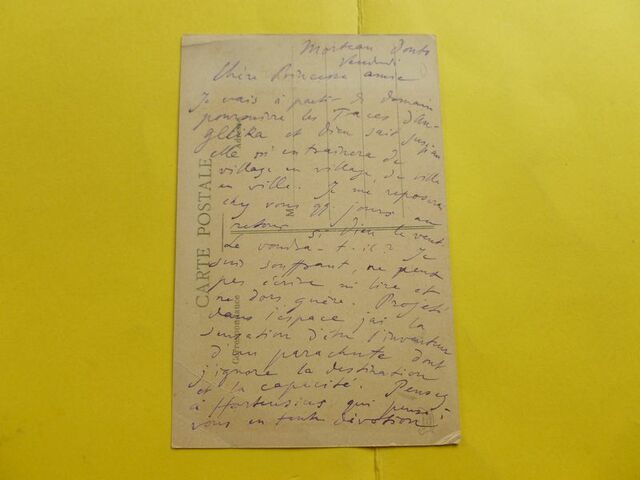 Morteau Doubs
Vendredi
Chère Princesse amie
Je vais à partir de demain
poursuivre les Traces d'An-
gelika et Dieu sait jusqu'
elle m'entrainera de
village en village, de ville
en ville. Je me reposerai
chez vous qq. jours au
retour si Dieu le veut
Le voudra-t-il? Je
suis souffrant, ne peux
pas écrire ni lire et
ne dors guère. Projeté
dans l'espace j'ai la
sensation d'être l'inventeur
d'un parachute dont
j'ignore la destination
et la capacité. Pensez
à Hortensius qui pense à
vous en toute dévotion
CARTE POSTALE
Correspondance
Adresse
M